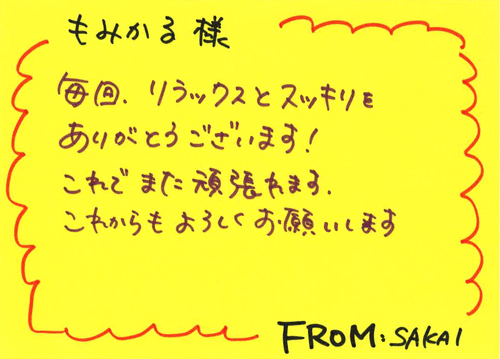 もみかる様
毎回、リラックスとスッキリを
ありがとうございます!
これでまた頑張れます。
これからもよろしくお願いします
FROM: SAKAI